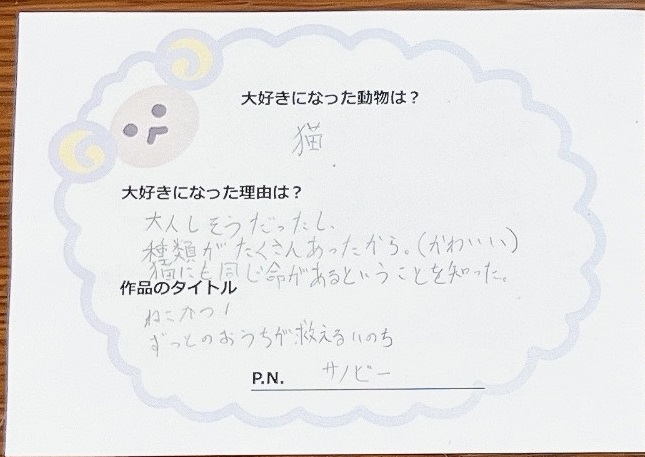 大好きになった動物は?
猫
大好きになった理由は?
大人しそうだったし、
種類がたくさんあったから。(かわいい)
猫にも同じ命があるということを知った。
作品のタイトル
ねこかつ!
ずっとのおうちが救えるいのち
P.N. サノピー